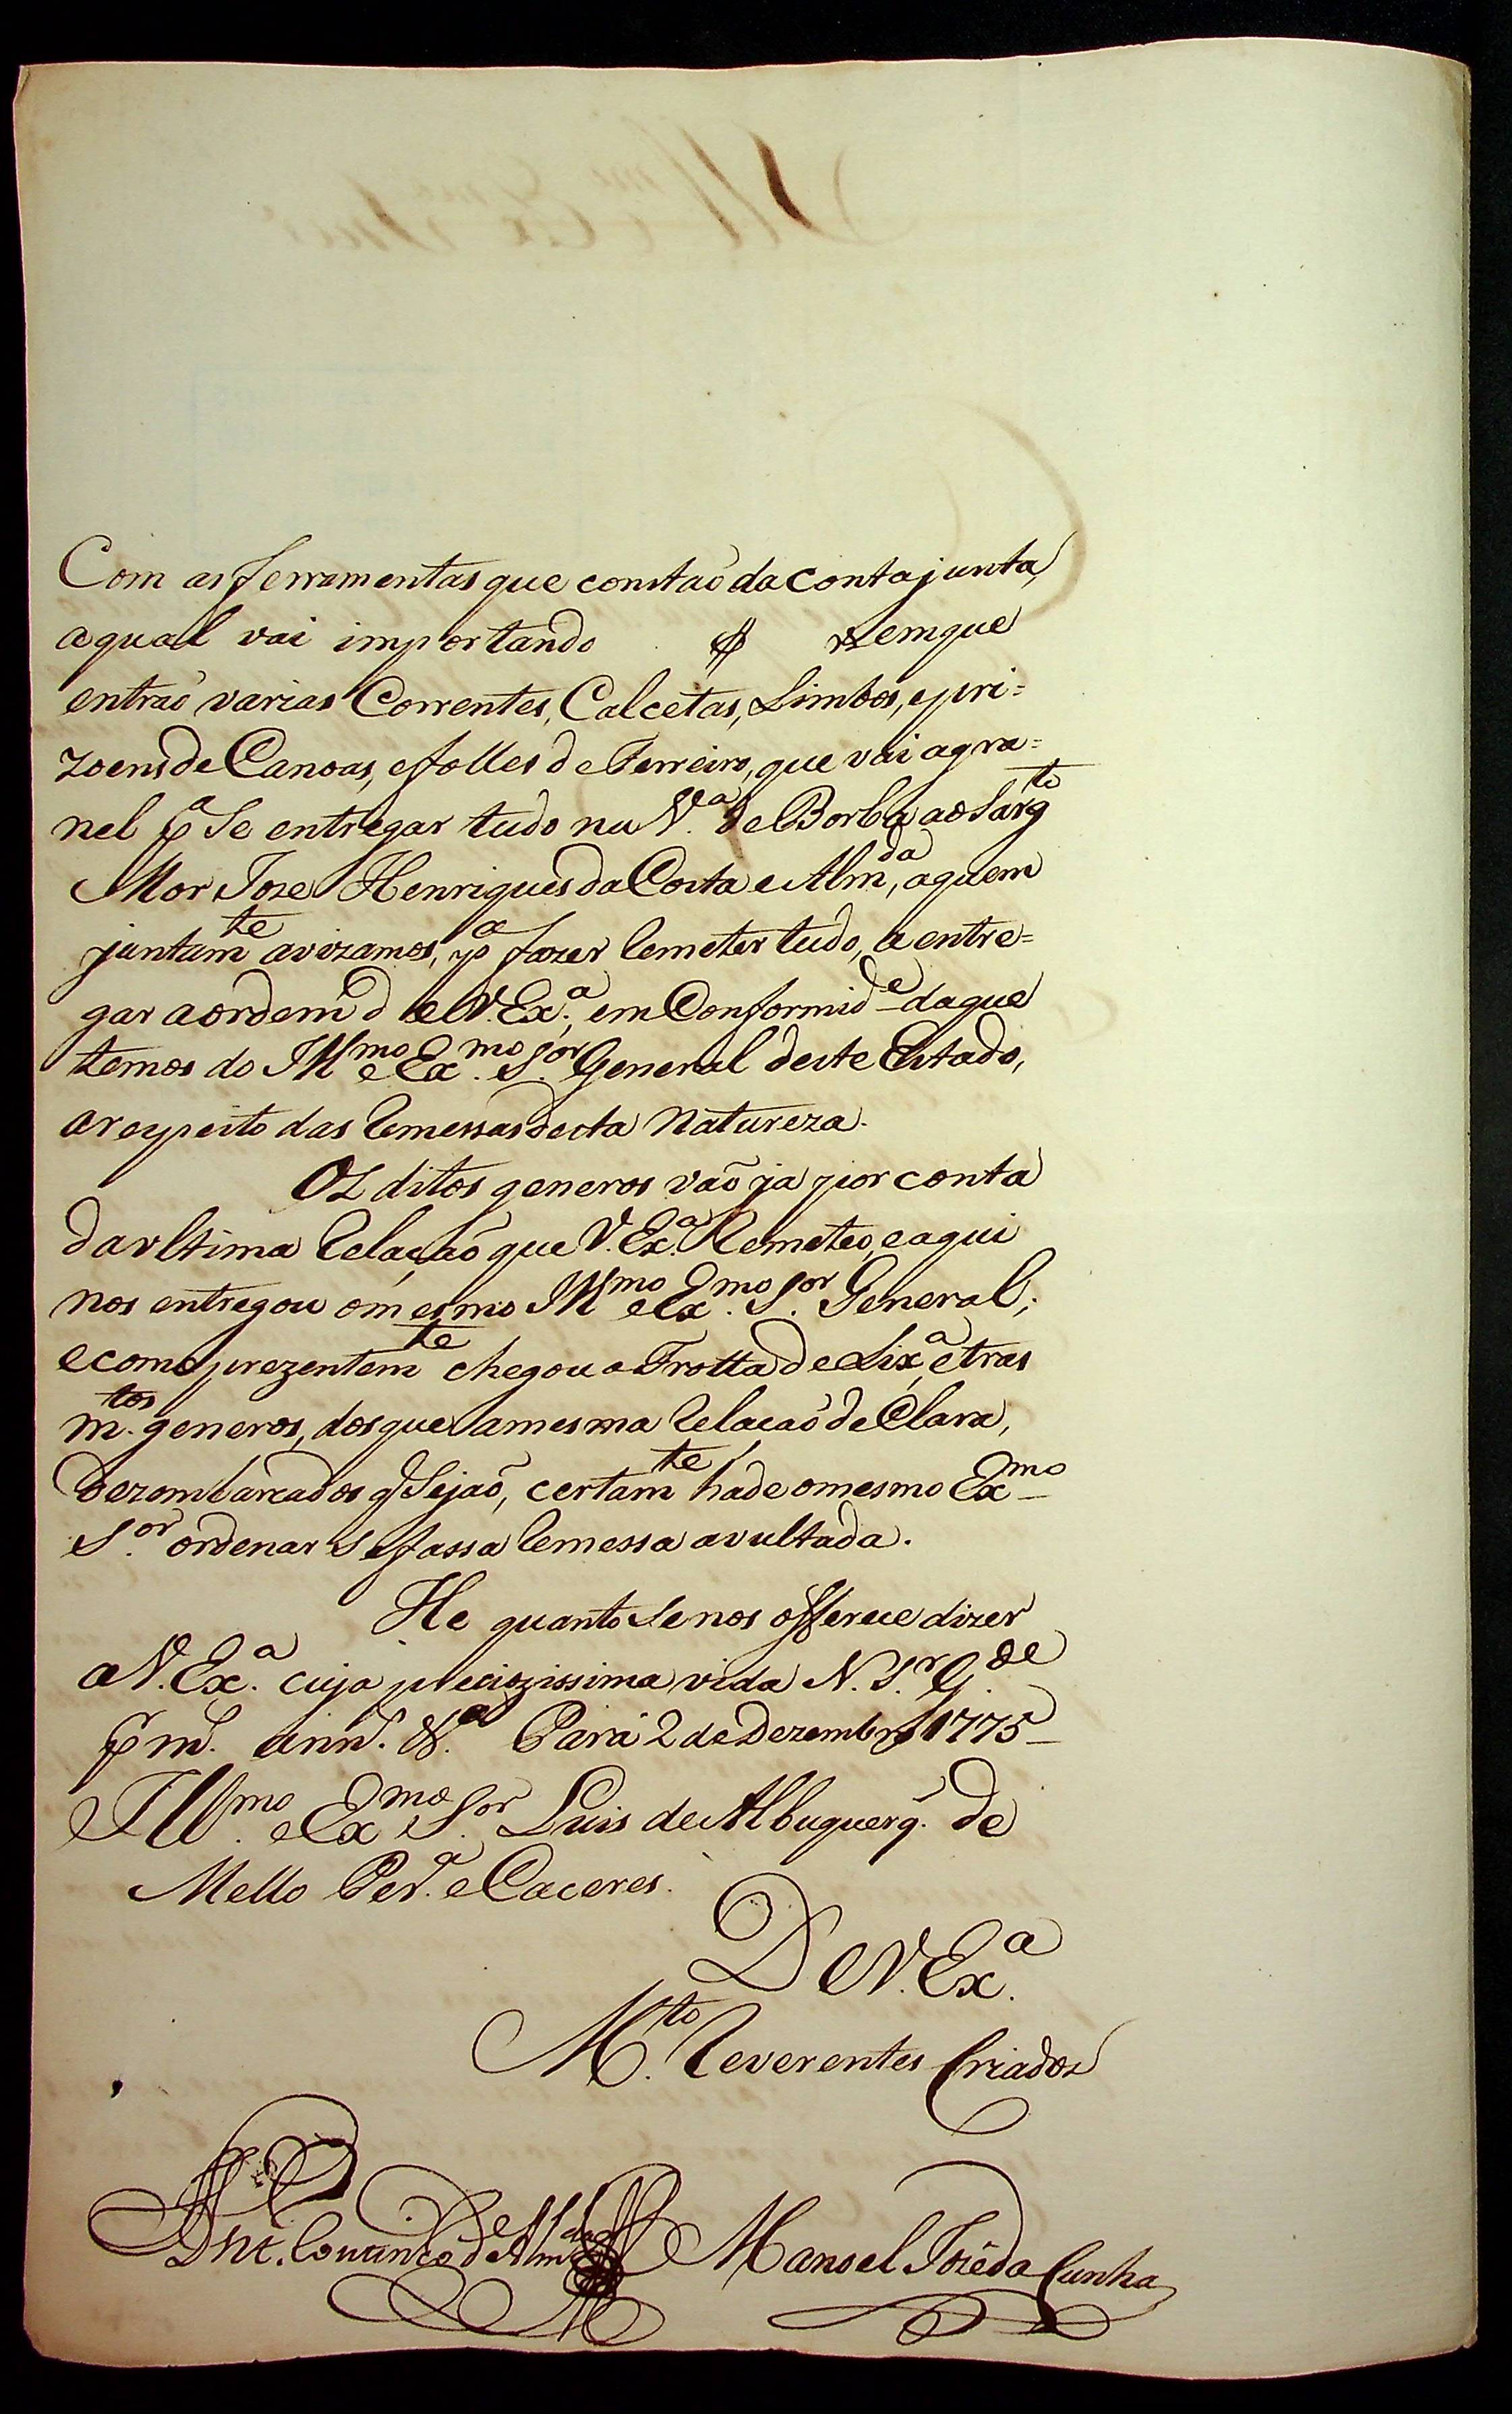 Com as ferramentas que constaõ da conta junta,
a qual vai importando $ rs em que
entraõ varias Correntes, Calcetas, Limbos, e pri=
zoens de Canoas, e folles de Ferreiro, que vai a gra=
nel p.ª Se entregar tudo na V.ª de Borba ao Sarg.to
Mor Joze Henriques da Costa e Alm.da, a quem
juntam.te avizamos, p.ª fazer Remeter tudo, a entre=
gar a ordem de V. Ex.ª, em Conformid.e da que
temos do Ill.mo e Ex.mo S.or General deste Estado,
a respeito das Remessas desta Natureza.
Os ditos generos vaõ ja por conta
da ultima Relaçaõ que V. Ex.ª Remeteo, e aqui
nos entregou o mesmo Ill.mo e Ex.mo S.or General;
e como prezentem.te chegou a Frotta de Lix.ª, e tras
m.tos generos, dos que a mesma Relacaõ de Clara,
dezembarcados q̃ Sejaõ, certam.te hade o mesmo Ex.mo
S.or ordenar Se fassa Remessa avultada.
He quanto Se nos offerece dizer
a V. Ex.ª cuja preciozissima vida N. S.r G.de
p.r m.s ann.s &.ª Pará 2 de Dezembro 1775
Ill.mo e Ex.mo S.or Luis de Albuquerq.̃ de
Mello Per.ª e Caceres.
De V. Ex.ª
M.to Reverentes Criados
de Alm.da Manoel Joze da Cunha